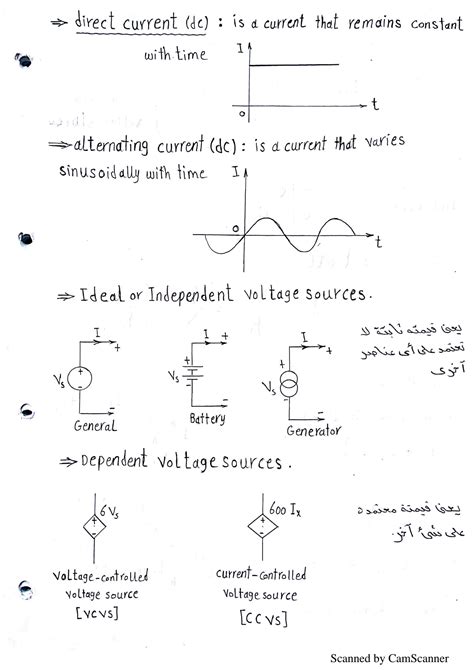 ⇒ direct current (dc) : is a current that remains constant
with time
I
t
0
⇒ alternating current (dc) : is a current that varies
sinusoidally with time
I
0
t
⇒ Ideal or Independent voltage sources.
يعنى قيمته ثابتة لا
تعتمد على أى عناصر
أخرى
I
+
Vs
+
-
-
General
I
+
+
Vs
-
-
Battery
I
+
+
Vs
-
-
Generator
⇒ Dependent voltage sources .
+
-
6 Vs
voltage-controlled
voltage source
[VCVS]
+
-
600 Ix
current-controlled
voltage source
[CCVS]
يعنى قيمتة معتمدة
على شئ آخر.
Scanned by CamScanner